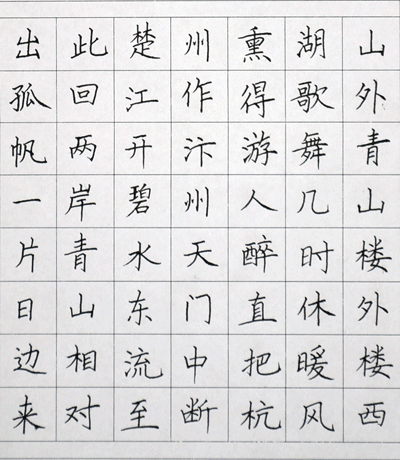 山外青山楼外楼西
湖歌舞几时休暖风
熏得游人醉直把杭
州作汴州天门中断
楚江开碧水东流至
此回两岸青山相对
出孤帆一片日边来